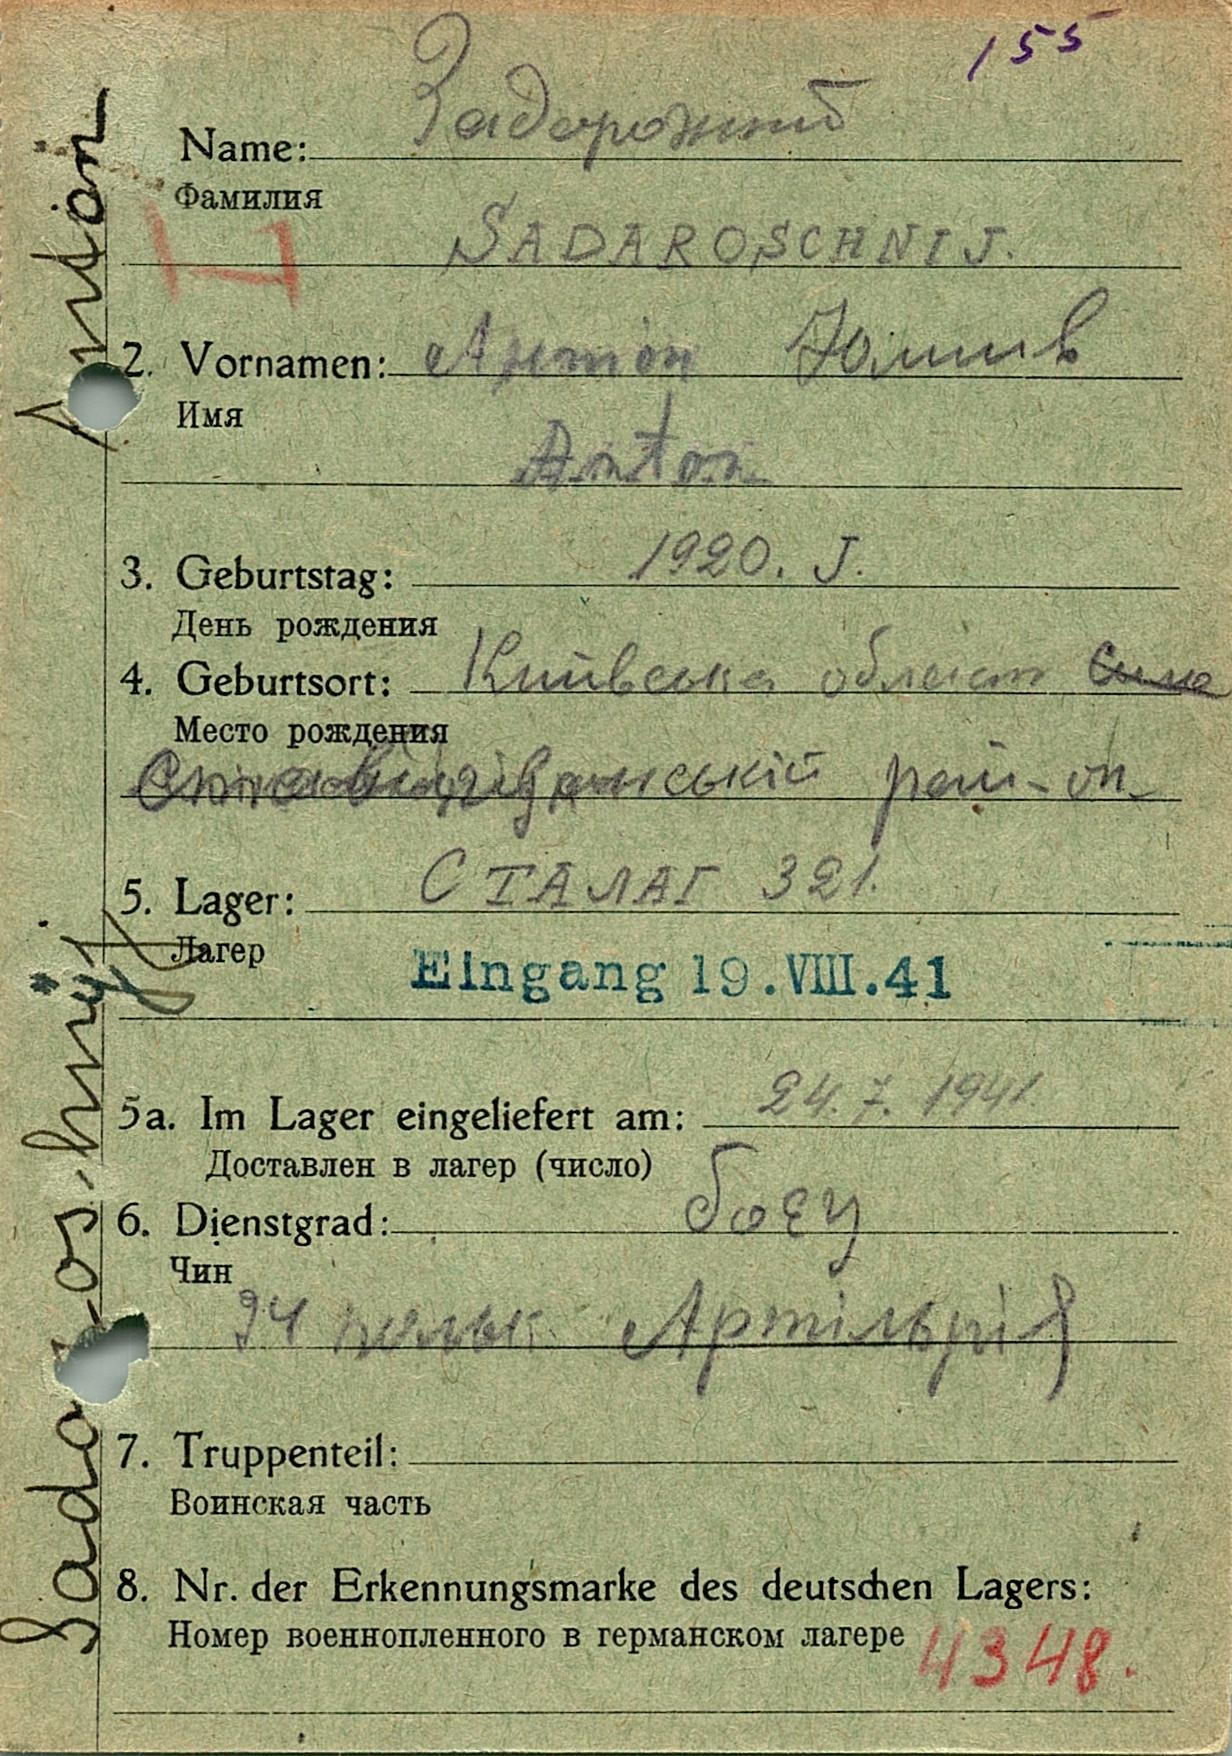 155
Задорожний
Name:
Фамилия
SADAROSCHNIJ.
2. Vornamen: Антон
Имя
Anton
1920. J.
3. Geburtstag:
День рождения
4. Geburtsort: Київська област
Место рождения
рай-он
5. Lager: СТАЛАГ 321.
Лагер
Eingang 19.VIII.41
5a. Im Lager eingeliefert am: 24.7.1941
Доставлен в лагер (число)
6. Dienstgrad: боец
Чин
94 полк Артілєрія
7. Truppenteil:
Воинская часть
8. Nr. der Erkennungsmarke des deutschen Lagers:
Номер военнопленного в германском лагере 4348.
Anton